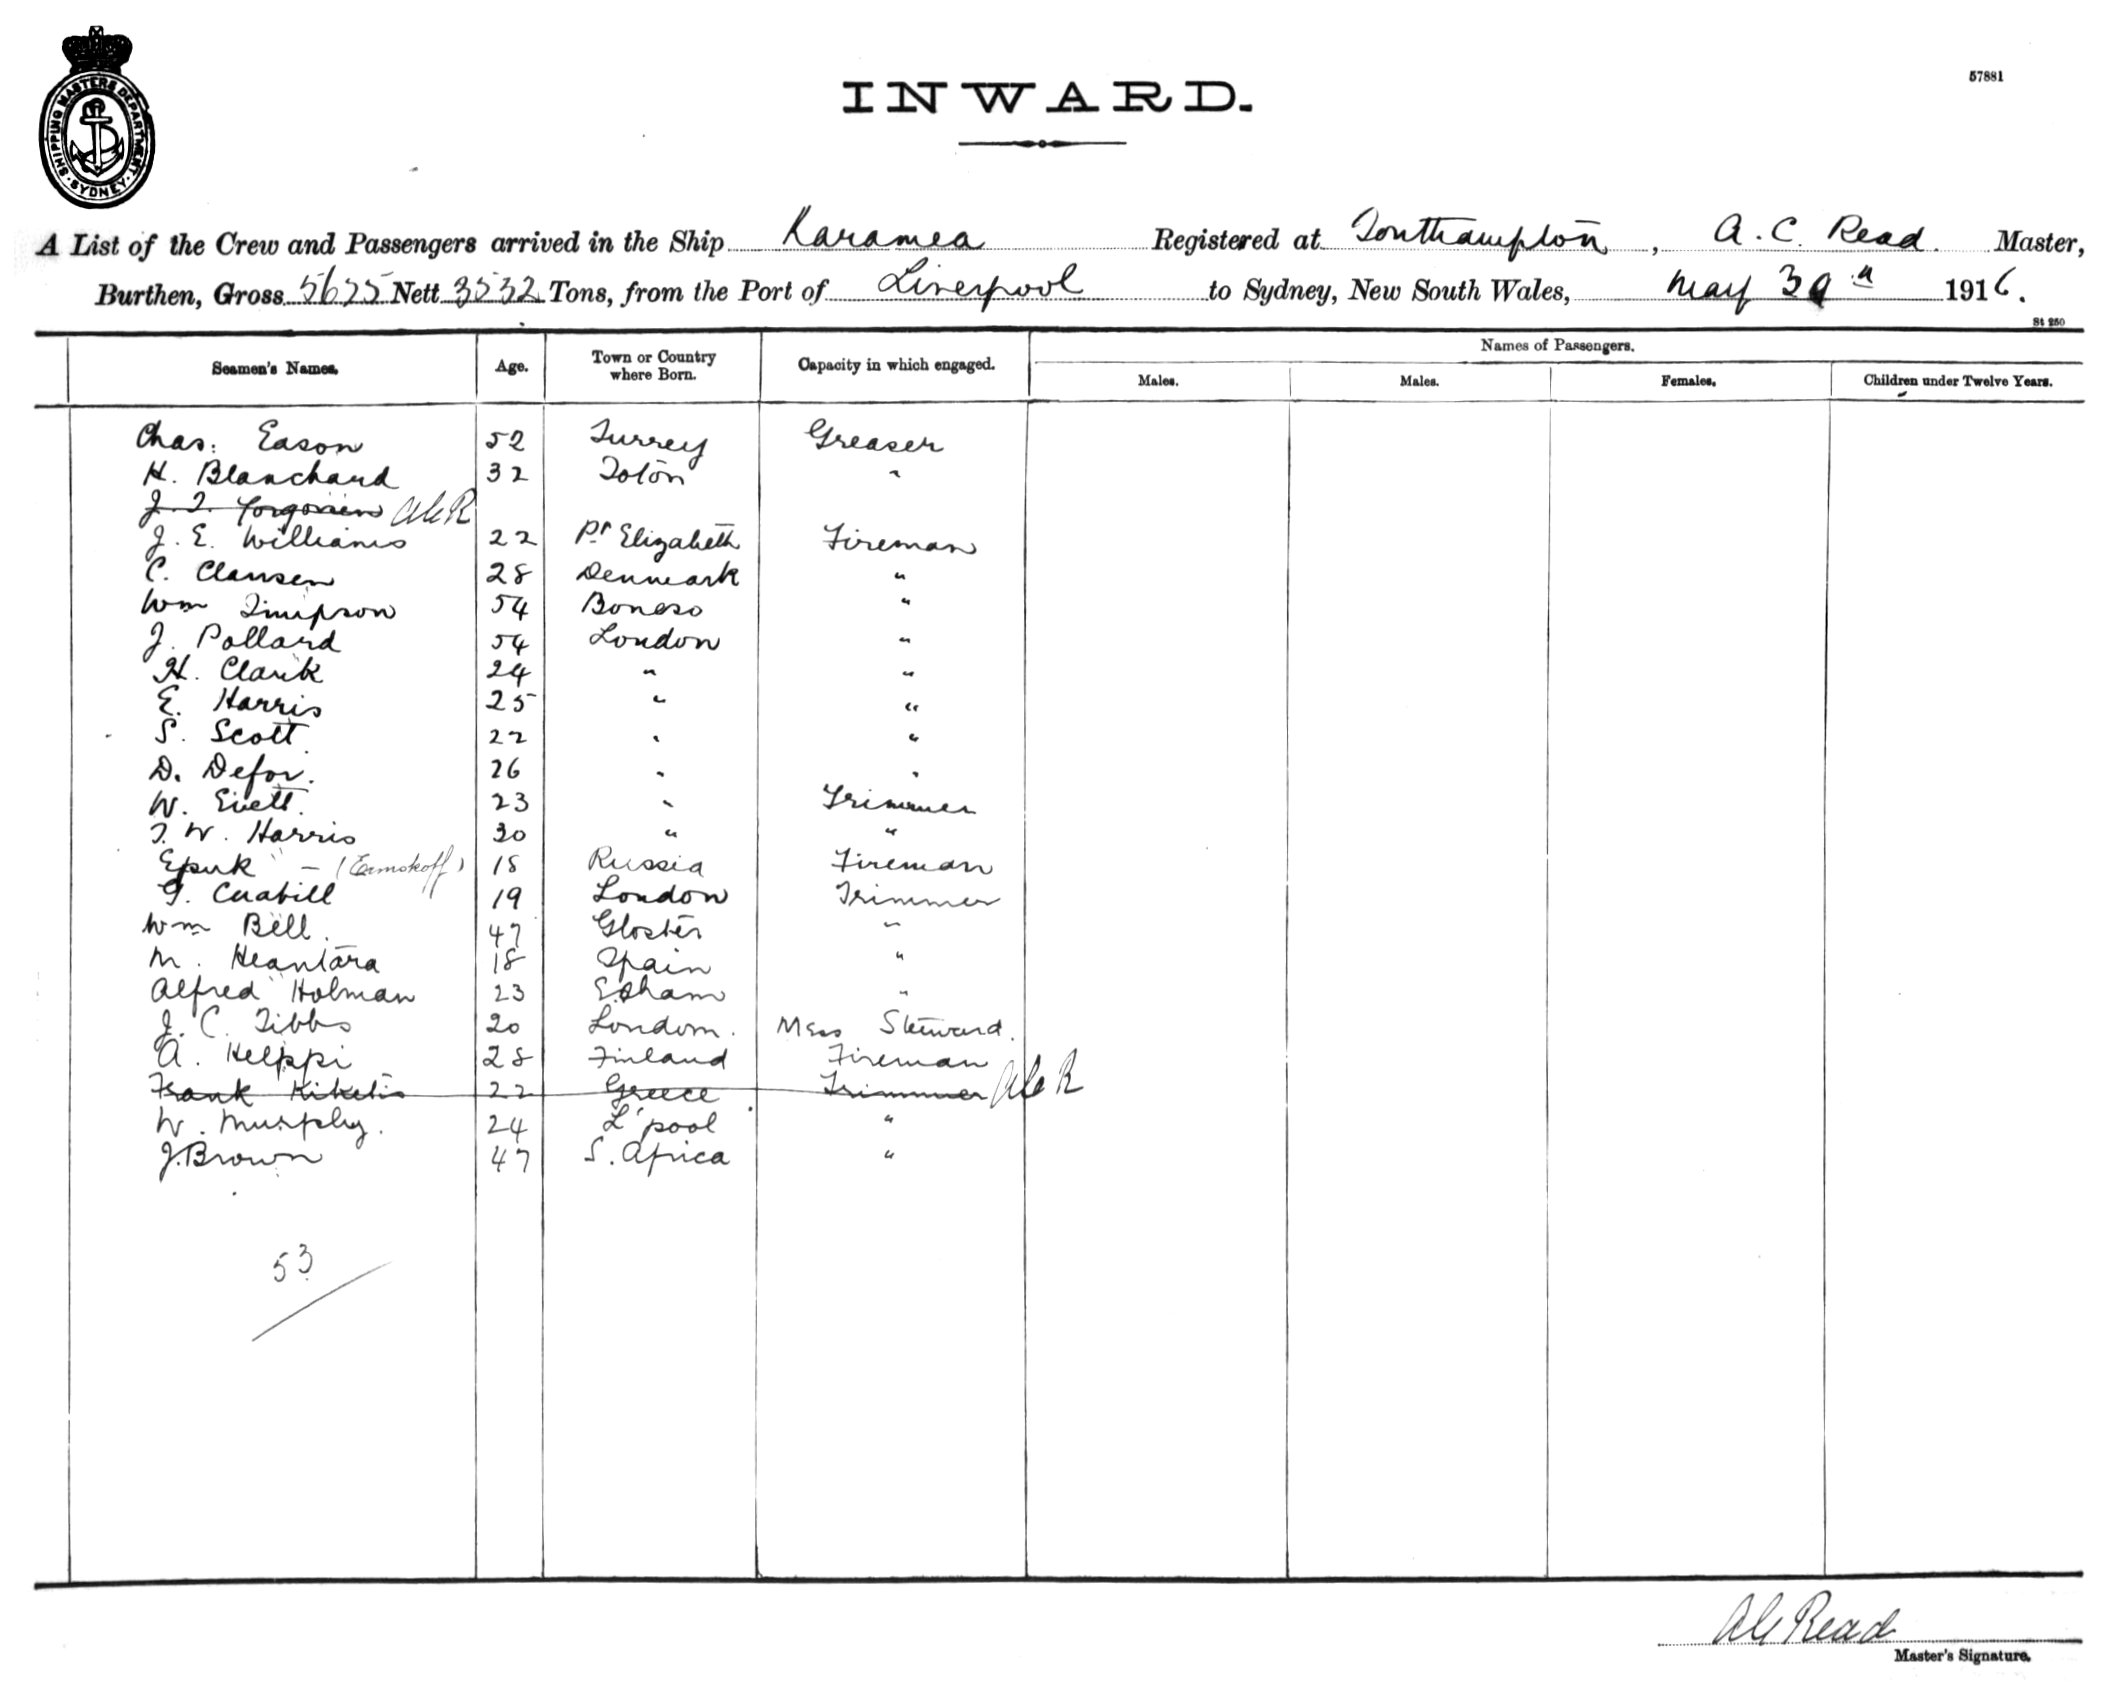 SHIPPING MASTERS DEPARTMENT · SYDNEY ·
57881
INWARD.
A List of the Crew and Passengers arrived in the Ship Karamea Registered at Southampton, A. C. Read Master,
Burthen, Gross Nett 3532 Tons, from the Port of Liverpool to Sydney, New South Wales, May 1916.
St 250
Seamen's Names. Age. Town or Country where Born. Capacity in which engaged. Names of Passengers.
Males. Males. Females. Children under Twelve Years.
Chas: Eason 52 Surrey Greaser
H. Blanchard 32 Toton "
J. T. ACR
J. E. Williams 22 Pt Elizabeth Fireman
C. Clausen 28 Denmark "
Wm Timpson 54 "
J. Pollard 54 London "
H. Clark 24 " "
E. Harris 25 " "
S. Scott 22 " "
D. Defor. 26 " "
W. Evett. 23 " Trimmer
T. W. Harris 30 " "
Epuk - (Ermskoff) 18 Russia Fireman
G. 19 London Trimmer
Wm Bell. 47 Gloster "
M. Heantara 18 Spain "
Alfred Holman 23 "
J. C. Tibbs 20 London. Mess Steward.
A. Helppi 28 Finland Fireman
Frank Kiketis 22 Greece Trimmer ACR
W. Murphy. 24 L'pool "
J. Brown 47 S. Africa "
53
AC Read
Master's Signature.